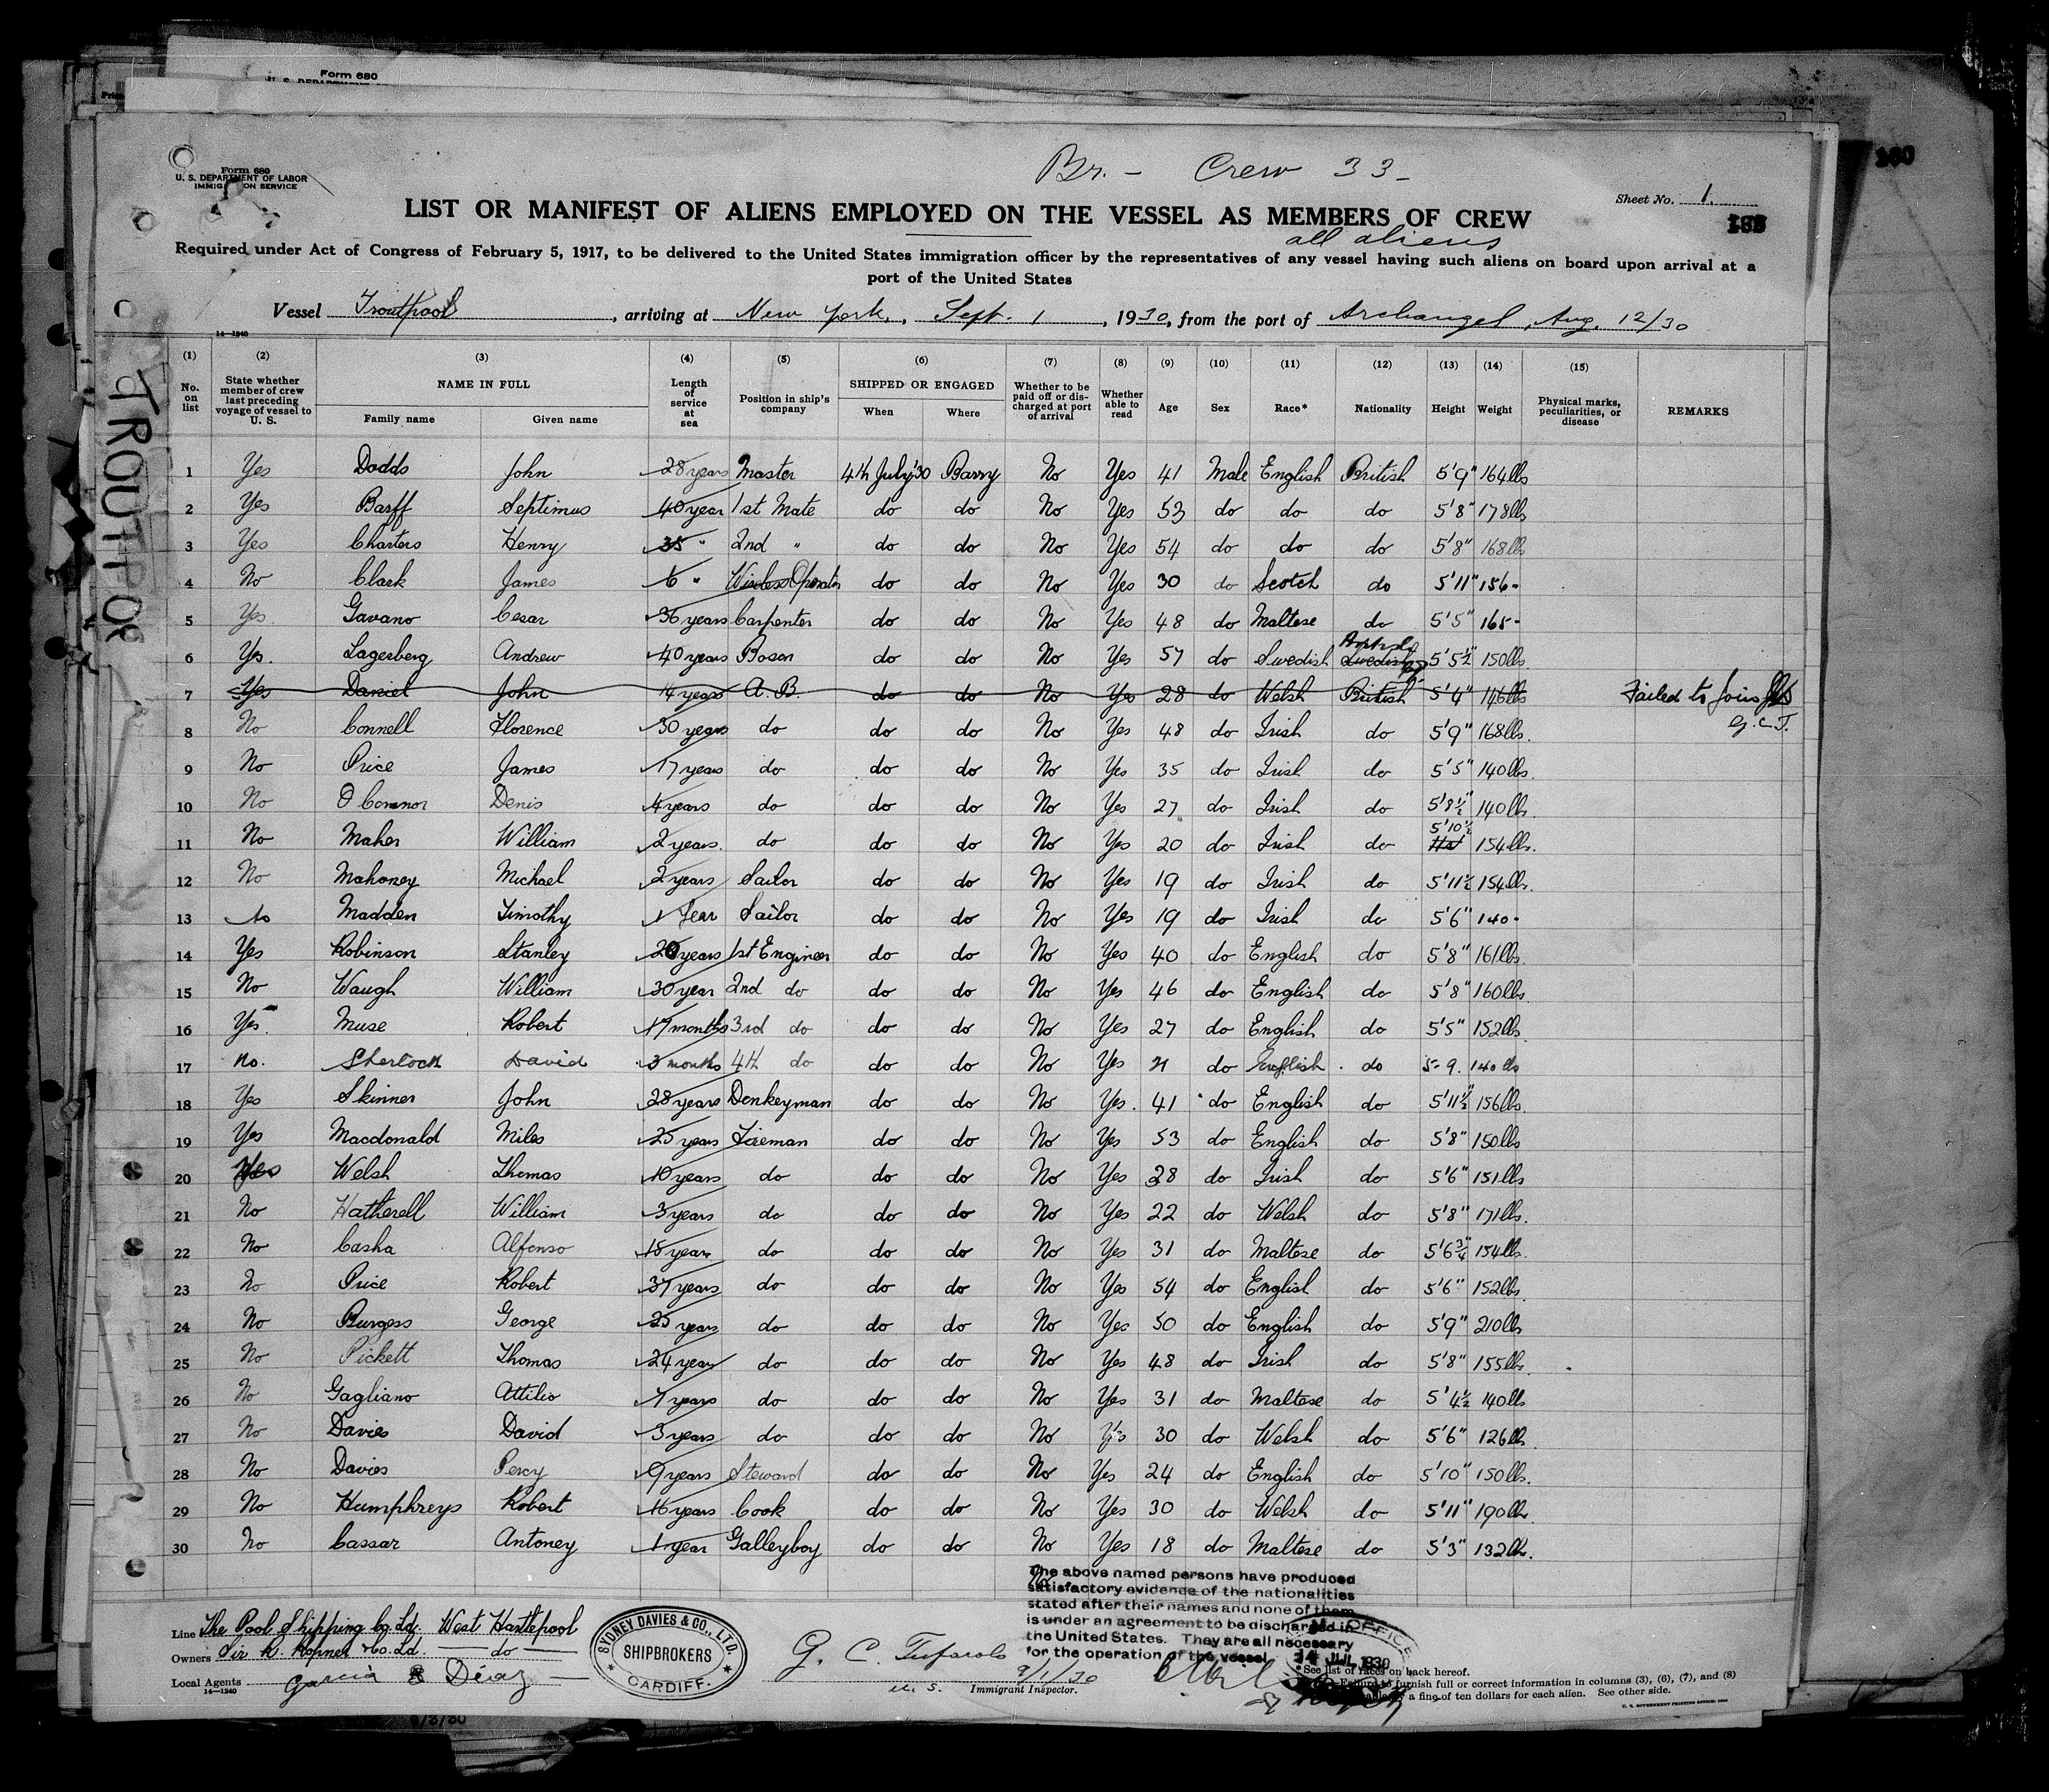 Form 680
Form 680
U. S. DEPARTMENT OF LABOR
IMMIGRATION SERVICE
Br. - Crew 33 -
Sheet No. 1.
LIST OR MANIFEST OF ALIENS EMPLOYED ON THE VESSEL AS MEMBERS OF CREW
all aliens
Required under Act of Congress of February 5, 1917, to be delivered to the United States immigration officer by the representatives of any vessel having such aliens on board upon arrival at a
port of the United States
Vessel Troutpool, arriving at New York, Sept. 1, 1930, from the port of Archangel, Aug. 12/30
14-1240
TROUTPOOL
(1) (2) (3) (4) (5) (6) (7) (8) (9) (10) (11) (12) (13) (14) (15)
No. on list State whether member of crew last preceding voyage of vessel to U. S. NAME IN FULL Family name Given name Length of service at sea Position in ship's company SHIPPED OR ENGAGED When Where Whether to be paid off or discharged at port of arrival Whether able to read Age Sex Race* Nationality Height Weight Physical marks, peculiarities, or disease REMARKS
1 Yes Dodds John 28 years Master 4th July '30 Barry No Yes 41 Male English British 5'9" 164lbs
2 Yes Barff Septimus 40 year 1st Mate do do No Yes 53 do do do 5'8" 178lbs
3 Yes Charters Henry 35 " 2nd " do do No Yes 54 do do do 5'8" 168lbs
4 No Clark James 6 " Wireless Operator do do No Yes 30 do Scotch do 5'11" 156-
5 Yes. Gavano Cesar 36 years Carpenter do do No Yes 48 do Maltese do 5'5" 165-
6 Yes. Lagerberg Andrew 40 years Bosen do do No Yes 57 do Swedish Swedish 5'5½" 150lbs.
7 Yes Daniel John 4 years A.B. do do No Yes 28 do Welsh British 5'4" 146lbs Failed to join
G.C.T.
8 No Connell Florence 30 years do do do No Yes 48 do Irish do 5'9" 168lbs.
9 No Price James 17 years do do do No Yes 35 do Irish do 5'5" 140lbs.
10 No O'Connor Denis 4 years do do do No Yes 27 do Irish do 5'8½" 140lbs.
11 No Maher William 2 years. do do do No Yes 20 do Irish do 5'10½ 154lbs.
12 No Mahoney Michael 2 years Sailor do do No Yes 19 do Irish do 5'11½ 154lbs.
13 No Madden Timothy 1 Year Sailor do do No Yes 19 do Irish do 5'6" 140-
14 Yes Robinson Stanley 20 years 1st Engineer do do No Yes 40 do English do 5'8" 161lbs.
15 No Waugh William 30 year 2nd do do do No Yes 46 do English do 5'8" 160lbs.
16 Yes. Muse Robert 17 months 3rd do do do No Yes 27 do English do 5'5" 152lbs
17 no. Sherlock David 3 months 4th do do do No Yes 21 do English do 5-9. 140 lbs
18 Yes Skinner John 28 years Donkeyman do do No Yes. 41 do English do 5'11½" 156lbs.
19 Yes Macdonald Miles 25 years Fireman do do No Yes 53 do English do 5'8" 150lbs
20 Yes Welsh Thomas 10 years do do do No Yes 28 do Irish do 5'6" 151lbs
21 No Hatherell William 3 years do do do No Yes 22 do Welsh do 5'8" 171lbs.
22 No Casha Alfonso 15 years do do do No Yes 31 do Maltese do 5'6¾" 154lbs.
23 No Price Robert 37 years do do do No Yes 54 do English do 5'6" 152lbs.
24 No Burgess George 25 years do do do No Yes 50 do English do 5'9" 210lbs
25 No Pickett Thomas 24 years do do do No Yes 48 do Irish do 5'8" 155lbs.
26 No Gagliano Attilio 7 years do do do No Yes 31 do Maltese do 5'4½ 140lbs
27 No Davies David 3 years do do do No Yes 30 do Welsh do 5'6" 126lbs
28 No Davies Percy 9 years Steward do do No Yes 24 do English do 5'10" 150lbs.
29 No Humphreys Robert 16 years Cook do do No Yes 30 do Welsh do 5'11" 190lbs.
30 No Cassar Antoney 1 year Galleyboy do do No Yes 18 do Maltese do 5'3" 132lbs.
The above named persons have produced
satisfactory evidence of the nationalities
stated after their names and none of them
is under an agreement to be discharged in
the United States. They are all necessary
for the operation of the vessel
OFFICE
14 JUL 1930
Line The Pool Shipping Co. Ld. West Hartlepool
Owners Sir R. Ropner & Co. Ld. do
Local Agents Garcia & Diaz
14-1240
SYDNEY DAVIES & CO., LTD.
SHIPBROKERS
CARDIFF.
G. C. Tufarolo
9/1/30
Immigrant Inspector.
*See list of races on back hereof.
Failure to furnish full or correct information in columns (3), (6), (7), and (8)
a fine of ten dollars for each alien. See other side.
U. S. GOVERNMENT PRINTING OFFICE